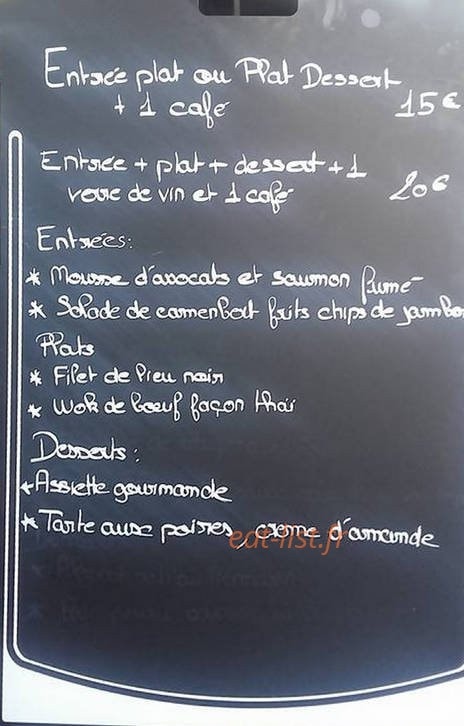 Entrée plat ou Plat Dessert
+ 1 café 15€
Entrée + plat + dessert + 1
verre de vin et 1 café 20€
Entrées:
* Mousse d'avocats et saumon fumé
* Salade de camembert frits chips de jambon
Plats
* Filet de lieu noir
* Wok de boeuf façon thaï
Desserts:
* Assiette gourmande
* Tarte aux poires, crème d'amande
eat-list.fr